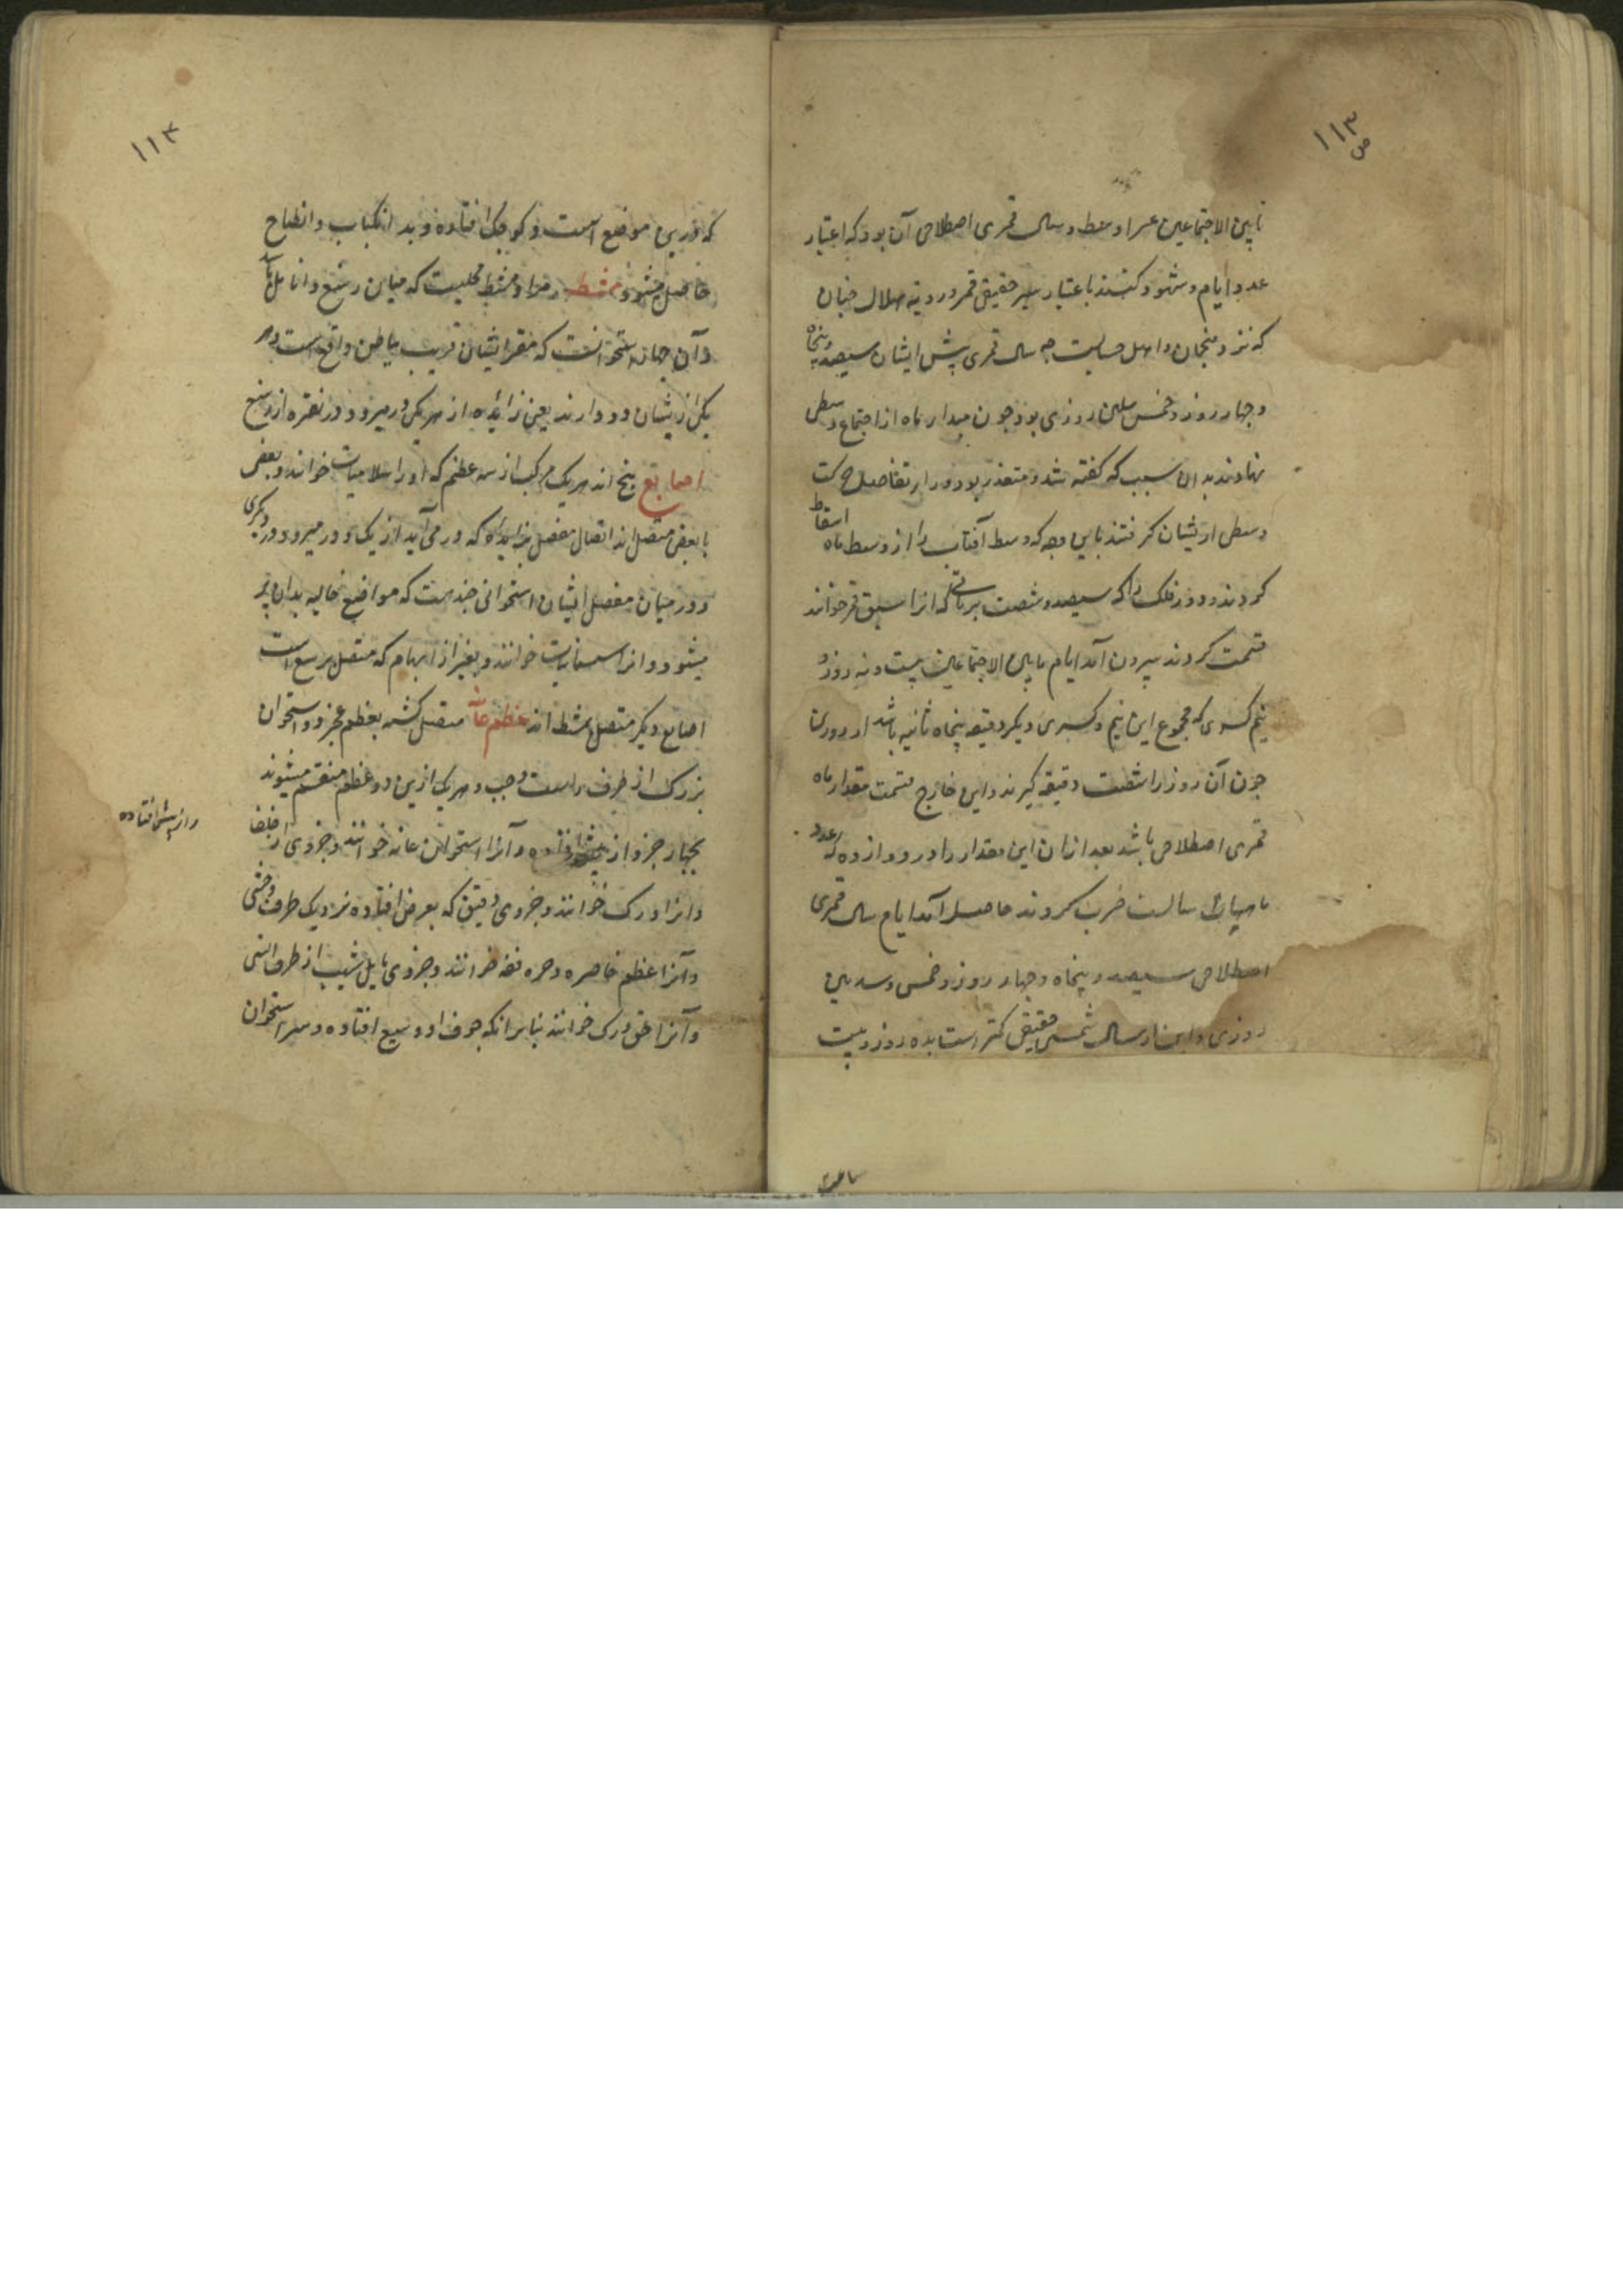 ۱۱۳
ص
مابین الاجتماعین و سال قمری اصطلاحی آن بود که اعتبار
عدد ایام و شهور کنند باعتبار سیر حقیقی قمر و رویة هلال چنان
که نزد منجمان و اهل حسابست چه سال قمری پیش ایشان سیصد و پنجاه
و چهار روز و خمس و سدس روزی بود چون مبدا ماه از اجتماع وسطی
نهادند بدان سبب که گفته شد و متعذر بود
وسطی ایشان گرفتند باین وجه که وسط آفتاب را از وسط ماه اسقاط
کردند و دور فلک را که سیصد و شصت بر باقی که انرا سبق قمر خوانند
قسمت کردند بیرون آمد ایام مابین الاجتماعین بیست و نه روز و
نیم کسری که مجموع این نیم و کسری دیگر دقیقه پنجاه ثانیه باشد از روزی
چون آن روز را شصت دقیقه گیرند و این خارج قسمت مقدار ماه
قمری اصطلاحی باشد بعد ازان این مقدار را در دوازده که عدد
ماههای سالست ضرب کردند حاصل آمد ایام سال قمری
اصطلاحی سیصد و پنجاه و چهار روز و خمس و سدس
روزی و این از سال شمسی حقیقی کمتر است بده روز و بیست
ساعت
۱۱۴
که درین موضع است و کوچک افتاده و بد انکباب و انطباح
حاصل میشود مشط و مراد مشط محلیست که میان رسغ و انامل
و آن چهار استخوانست که مقر ایشان قریب بباطن واقع است و هر
یکی ازیشان دو دارند یعنی زائده از هر یکی در میرود در نقره از رسغ
اصابع پنج اند هر یک مرکب از سه عظم که او را سلامیات خوانند و بعضی
با بعضی متصل اند اتصال مفصل بزایده که در می آید از یکی و در میرود در دیگری
و در میان مفصل ایشان استخوانی چند هست که مواضع خالیه بدان پر
میشود و انرا سمسمانیات خوانند و بغیر از ابهام که متصل برسغ است
اصابع دیگر متصل بمشط اند عظم عانه متصل گشته بعظم عجز دو استخوان
بزرگ از طرف راست و چپ و هر یک ازین دو عظم منقسم میشوند
بچهار جزو از پیش افتاده و آنرا استخوان عانه خوانند و جزوی از خلف
و از پیش افتاده
و انرا ورک خوانند و جزوی دقیق که بعرض افتاده نزدیک طرف وحشی
و آنرا عظم خاصره و حرقفه خوانند و جزوی مایل بشیب از طرف انسی
و آنرا حق ورک خوانند بنابر انکه جوف او وسیع افتاده و سر استخوان